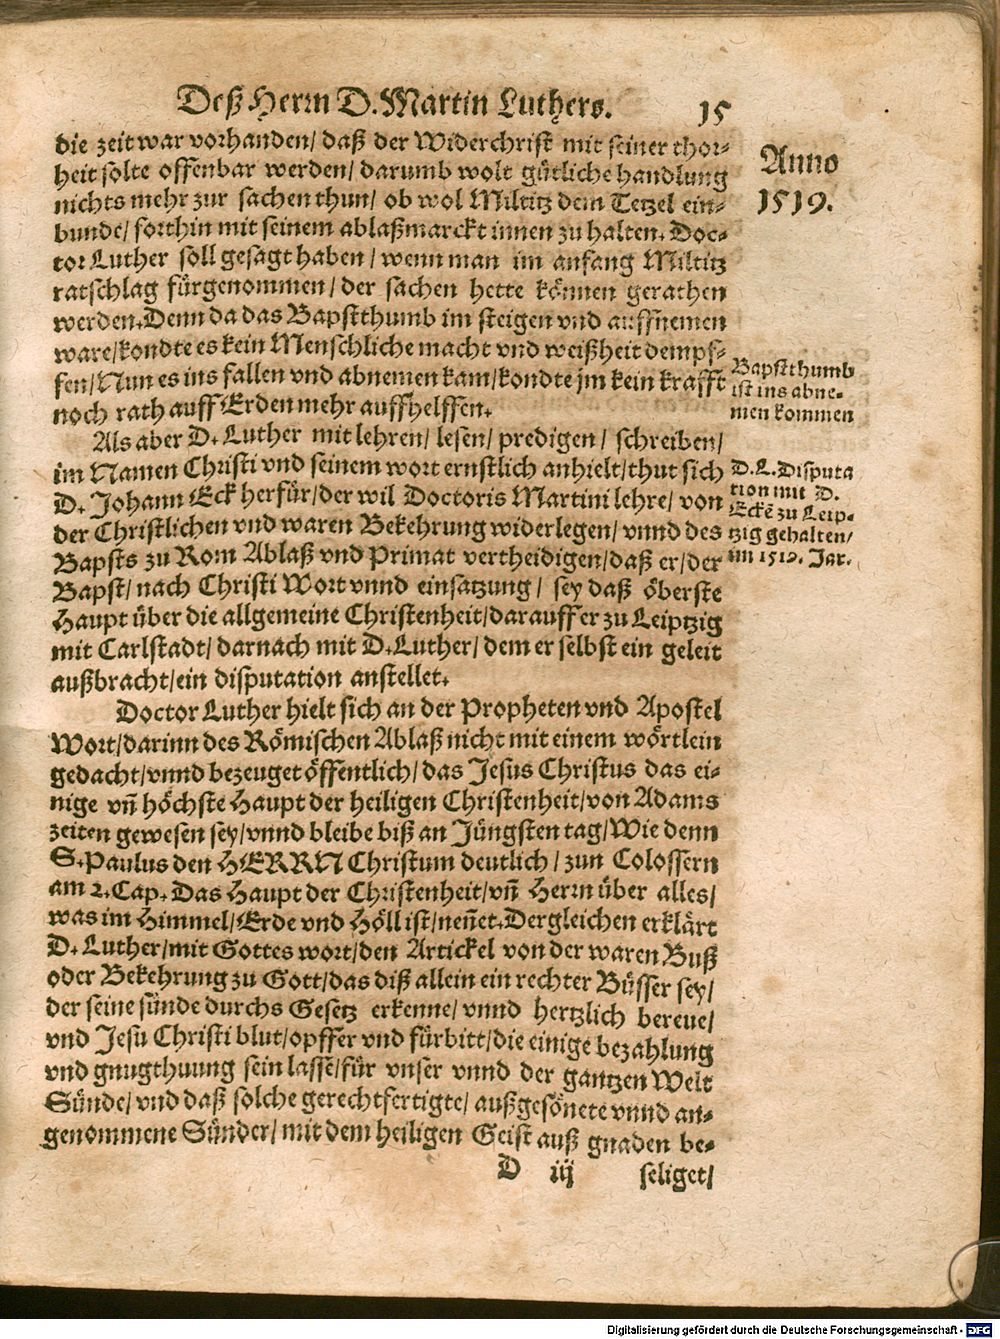 Deß Herrn D. Martin Luthers.
15
die zeit war vorhanden/ daß der Widerchrist mit seiner thor-
heit solte offenbar werden/ darumb wolt gütliche handlung
nichts mehr zur sachen thun/ ob wol Miltitz dem Tetzel ein-
bunde/ forthin mit seinem ablaßmarckt innen zu halten. Doc-
tor Luther soll gesagt haben/ wenn man im anfang Miltitz
ratschlag fürgenommen/ der sachen hette können gerathen
werden. Denn da das Bapstthumb im steigen vnd auffnemen
ware/ kondte es kein Menschliche macht vnd weißheit dempf-
fen/ Nun es ins fallen vnd abnemen kam/ kondte jm kein krafft
noch rath auff Erden mehr auffhelffen.
Als aber D. Luther mit lehren/ lesen/ predigen/ schreiben/
im Namen Christi vnd seinem wort ernstlich anhielt/ thut sich
D. Johann Eck herfür/ der wil Doctoris Martini lehre/ von
der Christlichen vnd waren Bekehrung widerlegen/ vnnd des
Bapsts zu Rom Ablaß vnd Primat vertheidigen/ daß er/ der
Bapst/ nach Christi Wort vnnd einsatzung/ sey daß öberste
Haupt über die allgemeine Christenheit/ darauff er zu Leiptzig
mit Carlstadt/ darnach mit D. Luther/ dem er selbst ein geleit
außbracht/ ein disputation anstellet.
Doctor Luther hielt sich an der Propheten vnd Apostel
Wort/ darinn des Römischen Ablaß nicht mit einem wörtlein
gedacht/ vnnd bezeuget öffentlich/ das Jesus Christus das ei-
nige vñ höchste Haupt der heiligen Christenheit/ von Adams
zeiten gewesen sey/ vnnd bleibe biß an Jüngsten tag/ Wie denn
S. Paulus den HERRN Christum deutlich/ zun Colossern
am 2. Cap. Das Haupt der Christenheit/ vñ Herrn über alles/
was im Himmel/ Erde vnd Höll ist/ neñet. Dergleichen erklärt
D. Luther/ mit Gottes wort/ den Artickel von der waren Buß
oder Bekehrung zu Gott/ das diß allein ein rechter Büsser sey/
der seine sünde durchs Gesetz erkenne/ vnnd hertzlich bereue/
vnd Jesu Christi blut/ opffer vnd fürbitt/ die einige bezahlung
vnd gnugthuung sein lasse/ für vnser vnnd der gantzen Welt
Sünde/ vnd daß solche gerechtfertigte/ außgesönete vnnd an-
genommene Sünder/ mit dem heiligen Geist auß gnaden be-
D iij
seliget/
Anno
1519.
Bapstthumb
ist ins abne-
men kommen
D. L. Disputa
tion mit D.
Eckẽ zu Leip-
tzig gehalten/
im 1519. Jar.
Digitalisierung gefördert durch die Deutsche Forschungsgemeinschaft - DFG